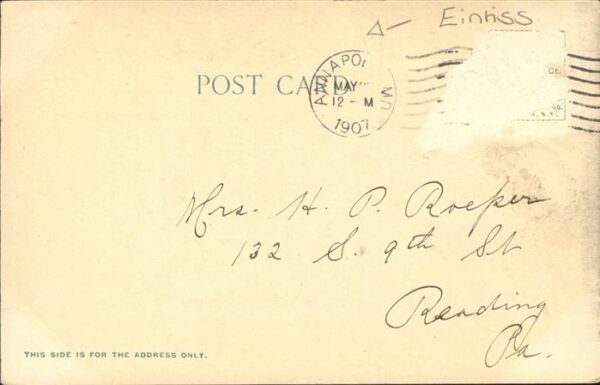 Einriss
POST CARD
ANNAPOL MD
MAY
12 - M
1907
Mrs. H. P. Roeper
132 S. 9th St
Reading
Pa.
THIS SIDE IS FOR THE ADDRESS ONLY.